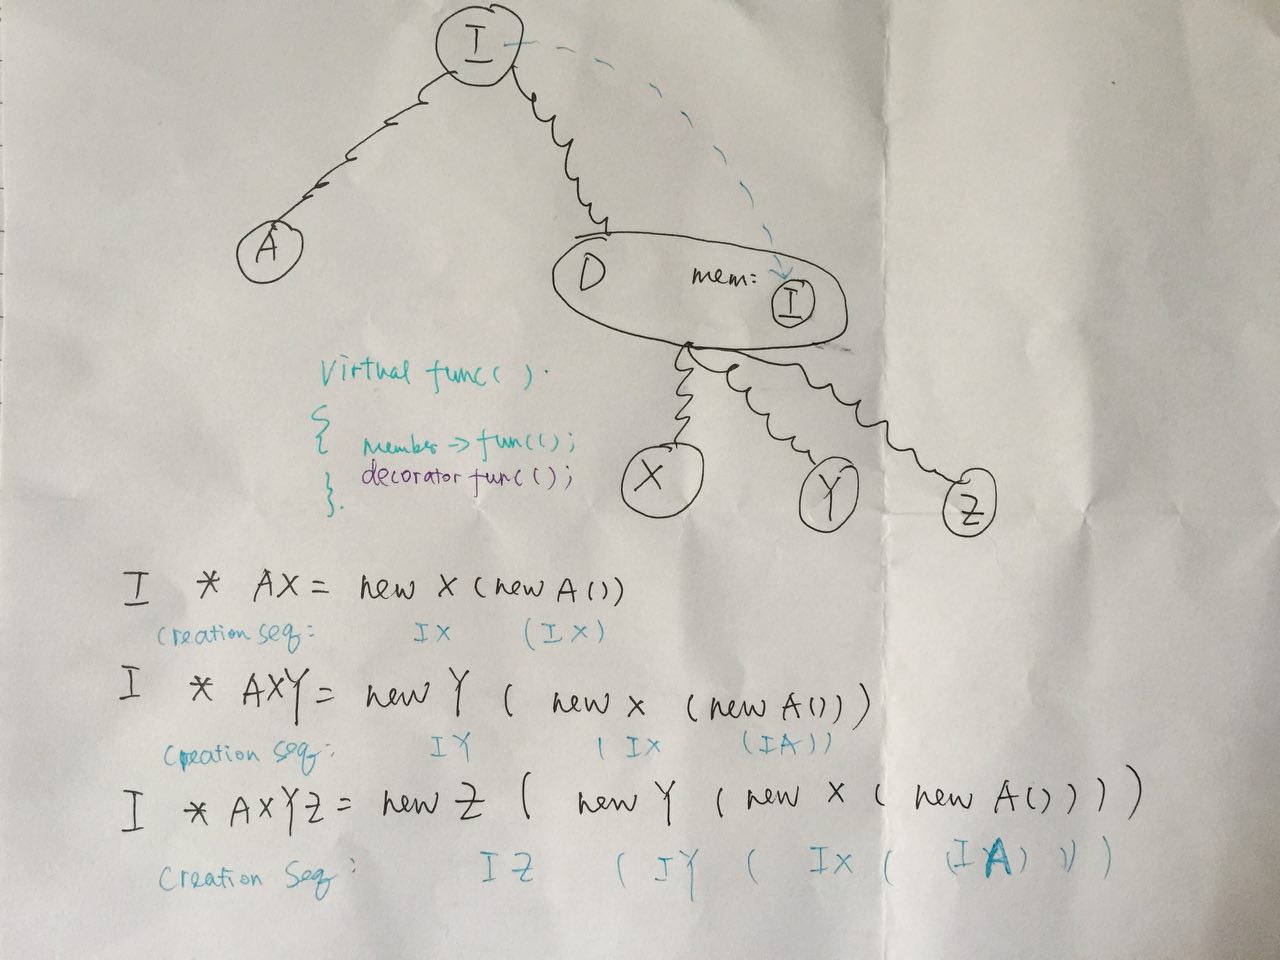 I
A
D mem: I
Virtual func( ).
{
member->fun();
decorator func();
}.
X Y Z
I * AX = new X (new A())
Creation seq: IX (IX)
I * AXY = new Y ( new X (new A()))
Creation seq: IY ( IX (IA))
I * AXYZ = new Z ( new Y ( new X ( new A())))
Creation Seq: IZ ( IY ( IX ( (IA) ) )